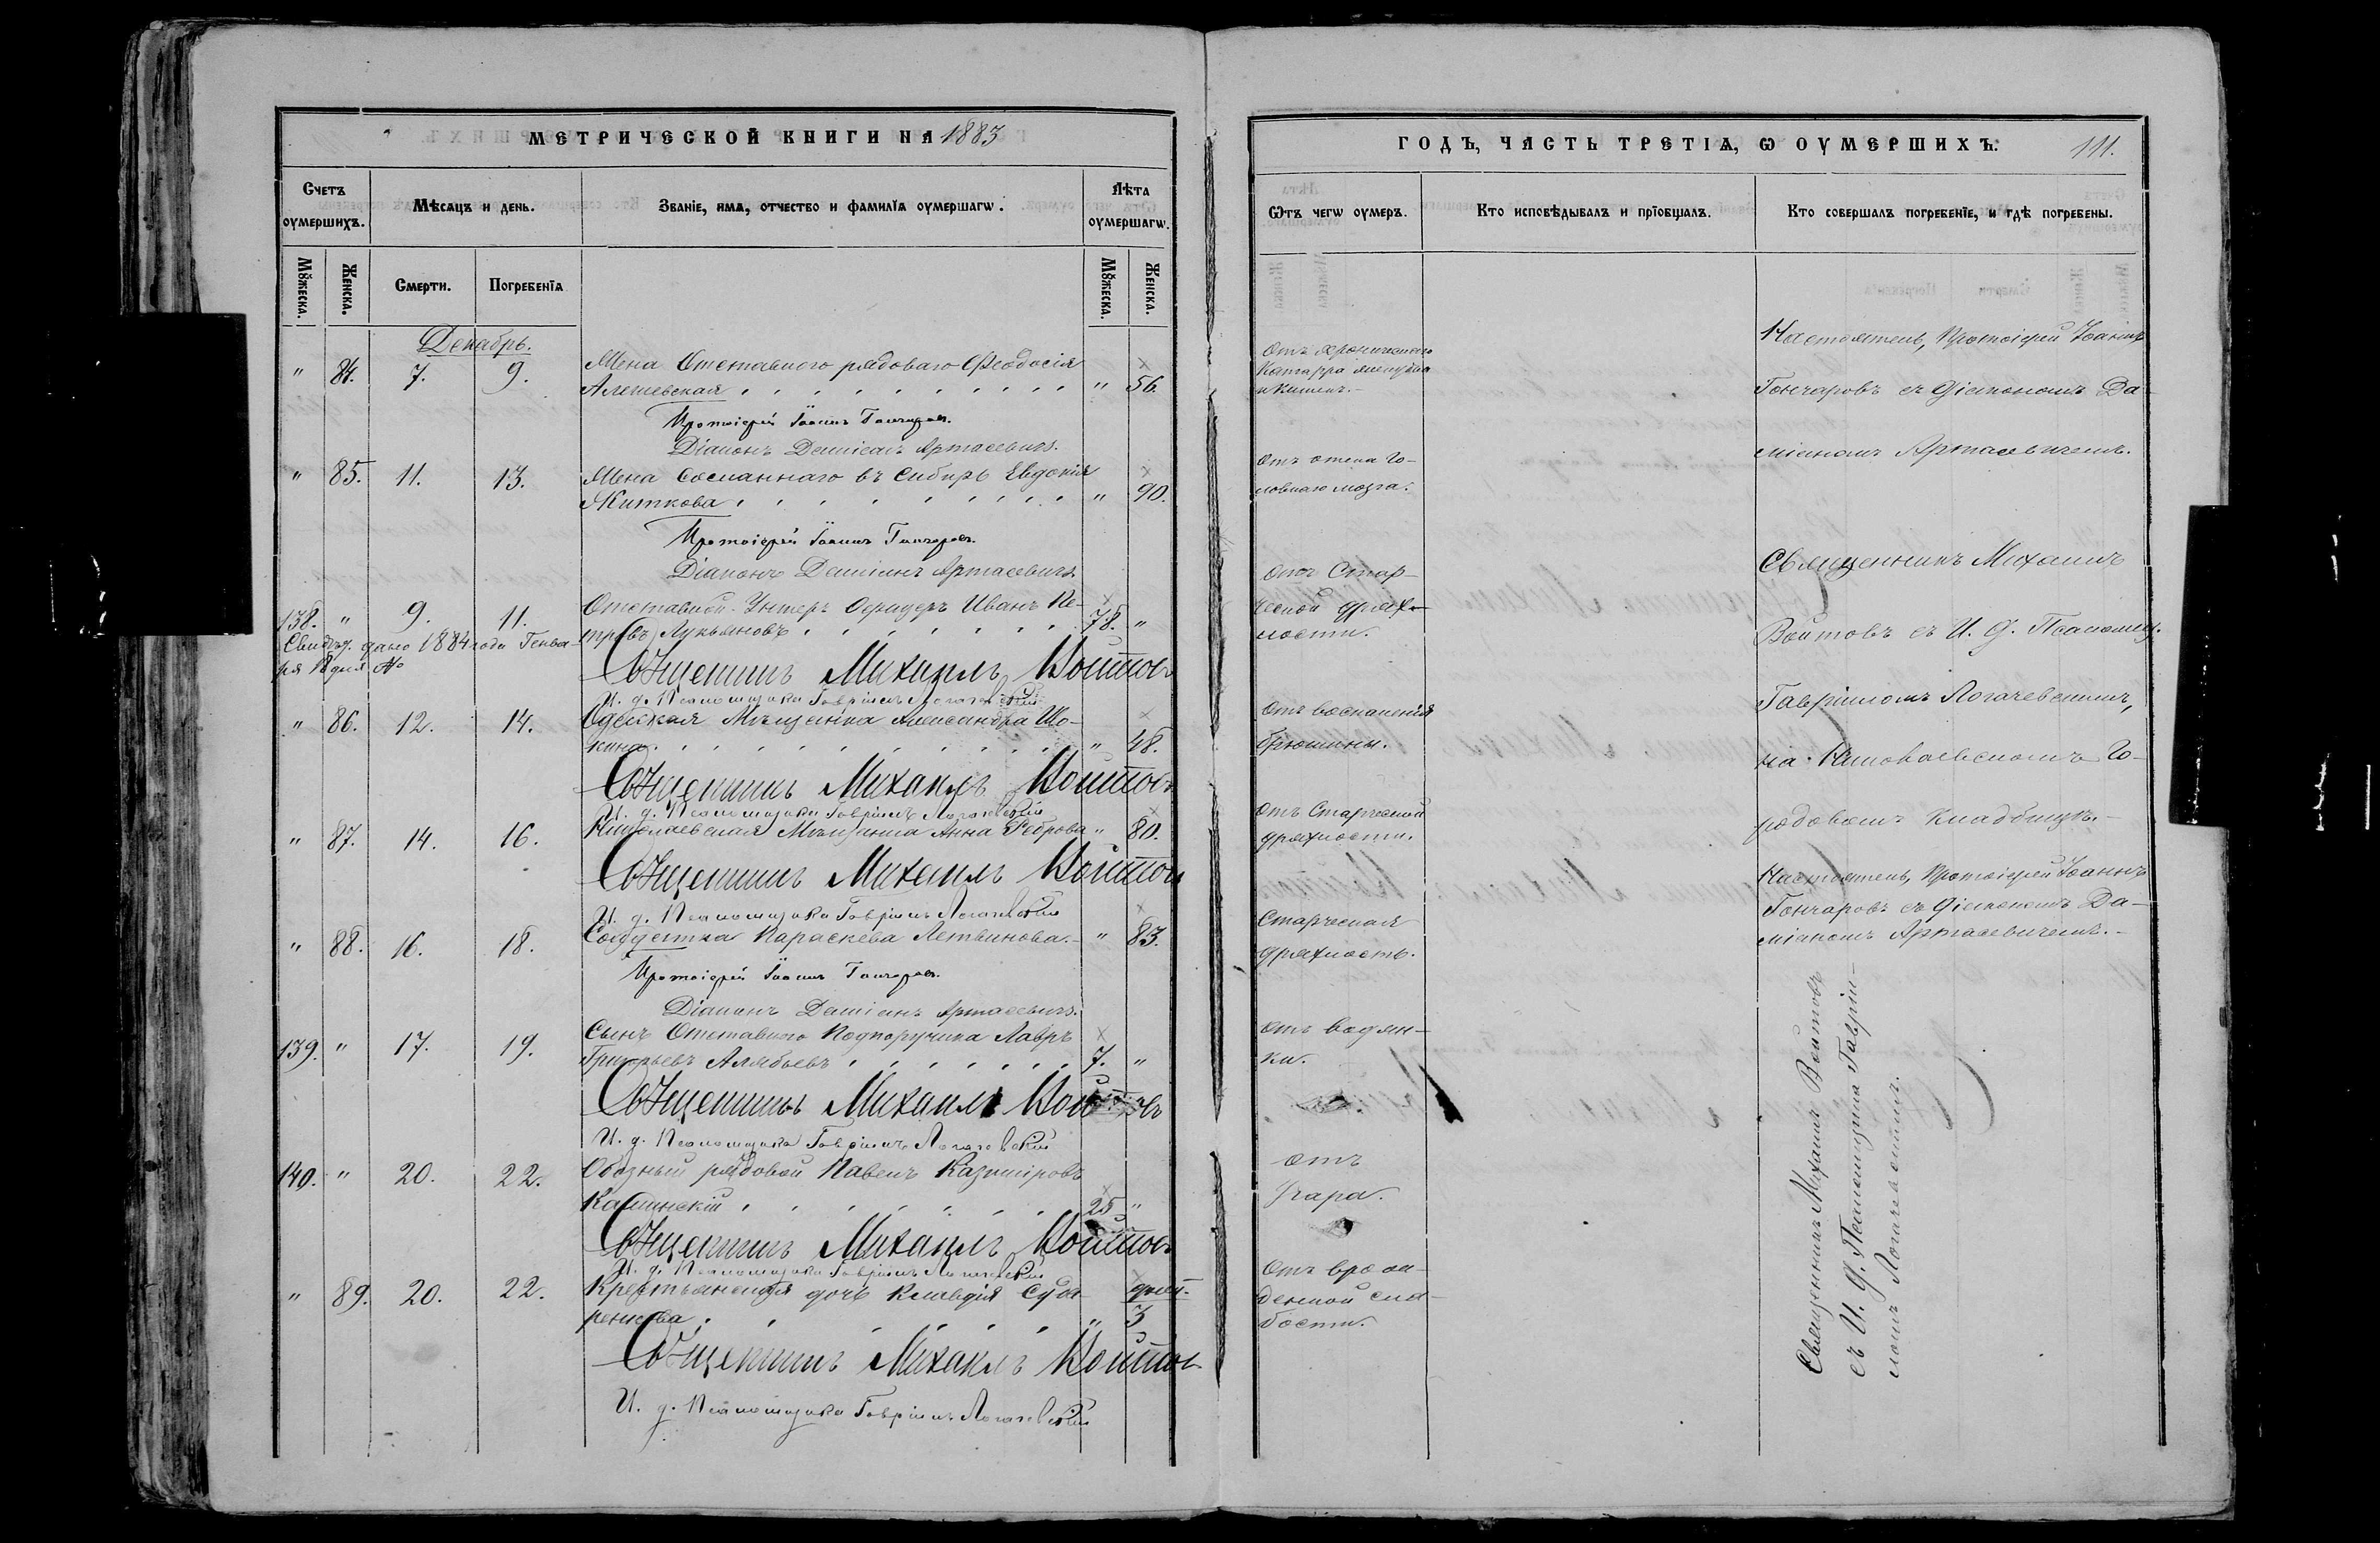 МЕТРИЧЕСКОЙ КНИГИ НА 1883
Счетъ оумершихъ.
Мѣсяцъ и день.
Званіе, имя, отчество и фамилія оумершагѡ.
Лѣта оумершагѡ.
Мꙋжеска.
Женска.
Смерти.
Погребенія
Мꙋжеска.
Женска.
Декабрь.
" 84. 7. 9. Жена Отставного рядоваго Ѳеодосія
Алешевская " 56.
Протоіерей Іоаннъ Гончаровъ.
Діаконъ Даміанъ Артасевичъ.
" 85. 11. 13. Жена Сосланнаго въ Сибирь Евдокія
Житкова " 90.
Протоіерей Іоаннъ Гончаровъ.
Діаконъ Даміанъ Артасевичъ.
138. " 9. 11. Отставной Унтеръ Офицеръ Иванъ Пе-
тровъ Лукьяновъ 78. "
Свидѣт. дано 1884 года Генва-
ря 18 дня №
Священникъ Михаилъ Войтовъ
И. д. Псаломщика Гавріилъ Логачевскій
" 86. 12. 14. Одесская Мѣщанка Александра Шо-
кина " 48.
Священникъ Михаилъ Войтовъ
И. д. Псаломщика Гавріилъ Логачевскій
" 87. 14. 16. Николаевская Мѣщанка Анна Реброва " 80.
Священникъ Михаилъ Войтовъ
И. д. Псаломщика Гавріилъ Логачевскій
" 88. 16. 18. Солдатка Параскева Летвинова. " 83.
Протоіерей Іоаннъ Гончаровъ.
Діаконъ Даміанъ Артасевичъ.
139. " 17. 19. Сынъ Отставного Подпоручика Лавръ
Григорьевъ Алябьевъ 7. "
Священникъ Михаилъ Войтовъ
И. д. Псаломщика Гавріилъ Логачевскій
140. " 20. 22. Обозный рядовой Павелъ Казиміровъ
Калинскій 25 "
Священникъ Михаилъ Войтовъ
И. д. Псаломщика Гавріилъ Логачевскій
" 89. 20. 22. Крестьянская дочь Клавдія Суда-
ренкова " дней 3
Священникъ Михаилъ Войтовъ
И. д. Псаломщика Гавріилъ Логачевскій
ГОДЪ, ЧАСТЬ ТРЕТІЯ, Ѡ ОУМЕРШИХЪ. 111.
Ѿтъ чегѡ оумеръ.
Кто исповѣдывалъ и пріобщалъ.
Кто совершалъ погребеніе, и гдѣ погребены.
Отъ хроническаго
Катарра желудка
и кишекъ.
Отъ отека го-
ловнаго мозга.
Отъ Стар-
ческой дрях-
лости.
Отъ воспаленія
брюшины.
Отъ Старческой
дряхлости.
Старческая
дряхлость.
Отъ водян-
ки.
Отъ
Угара.
Отъ врож-
денной сла-
бости.
Настоятель, Протоіерей Іоаннъ
Гончаровъ съ Діакономъ Да-
міаномъ Артасевичемъ.
Священникъ Михаилъ
Войтовъ съ И. Д. Псаломщ.
Гавріиломъ Логачевскимъ,
на Николаевскомъ Го-
родовомъ кладбищѣ.
Настоятель, Протоіерей Іоаннъ
Гончаровъ съ Діакономъ Да-
міаномъ Артасевичемъ.
Священникъ Михаилъ Войтовъ
съ И. Д. Псаломщика Гавріи-
ломъ Логачевскимъ.